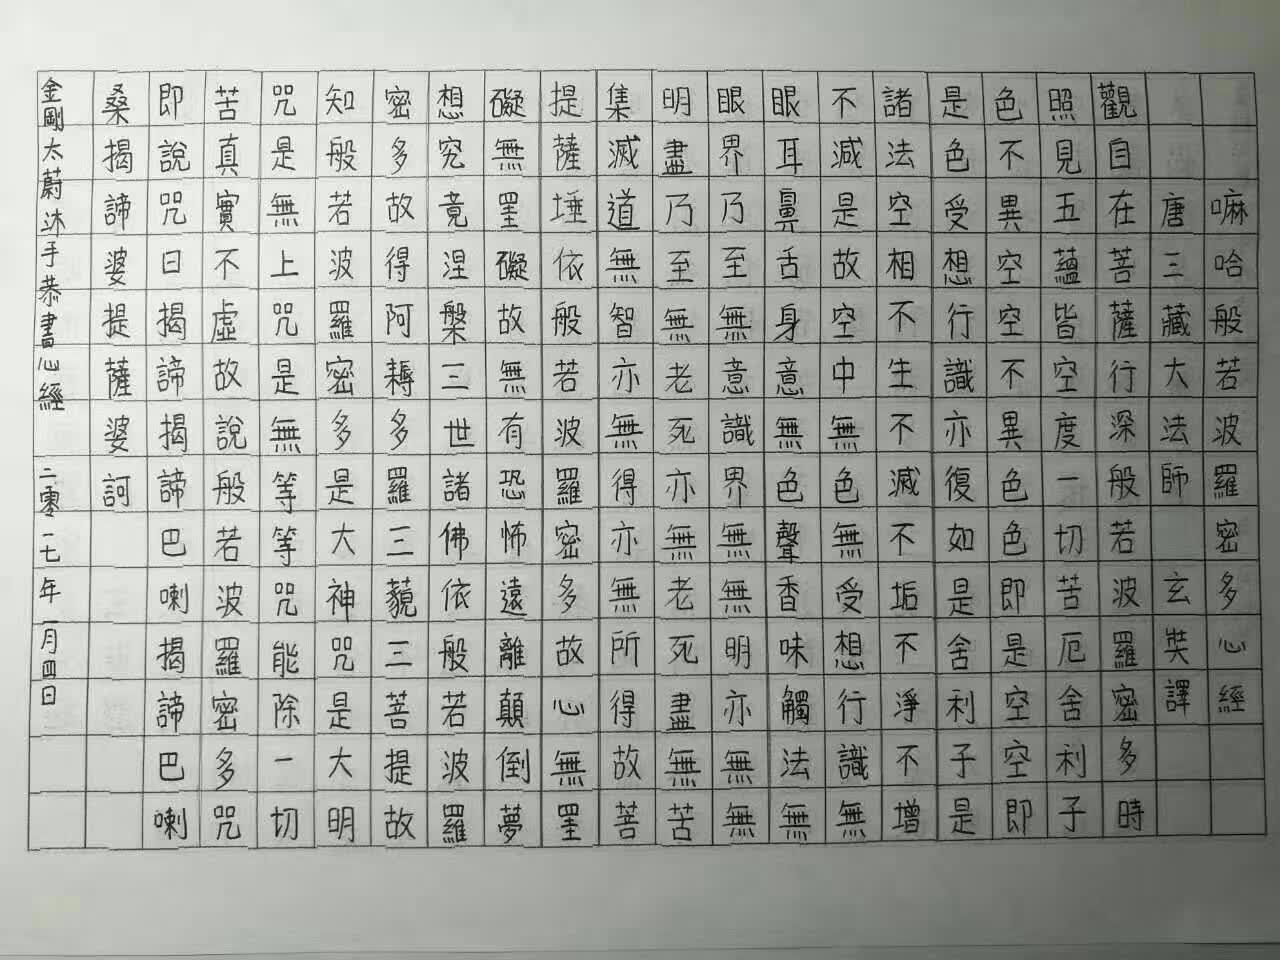 嘛哈般若波羅密多心經
唐三藏大法師 玄奘譯
觀自在菩薩行深般若波羅密多時
照見五蘊皆空度一切苦厄舍利子
色不異空空不異色色即是空空即
是色受想行識亦復如是舍利子是
諸法空相不生不滅不垢不淨不增
不減是故空中無色無受想行識無
眼耳鼻舌身意無色聲香味觸法無
眼界乃至無意識界無無明亦無無
明盡乃至無老死亦無老死盡無苦
集滅道無智亦無得亦無所得故菩
提薩埵依般若波羅密多故心無罣
礙無罣礙故無有恐怖遠離顛倒夢
想究竟涅槃三世諸佛依般若波羅
密多故得阿耨多羅三藐三菩提故
知般若波羅密多是大神咒是大明
咒是無上咒是無等等咒能除一切
苦真實不虛故說般若波羅密多咒
即說咒曰揭諦揭諦巴喇揭諦巴喇
桑揭諦婆提薩婆訶
金剛太蔚沐手恭書心經 二零一七年一月四日